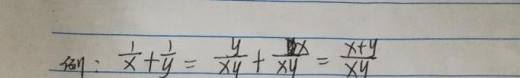 例: 1/x + 1/y = y/xy + x/xy = x+y/xy